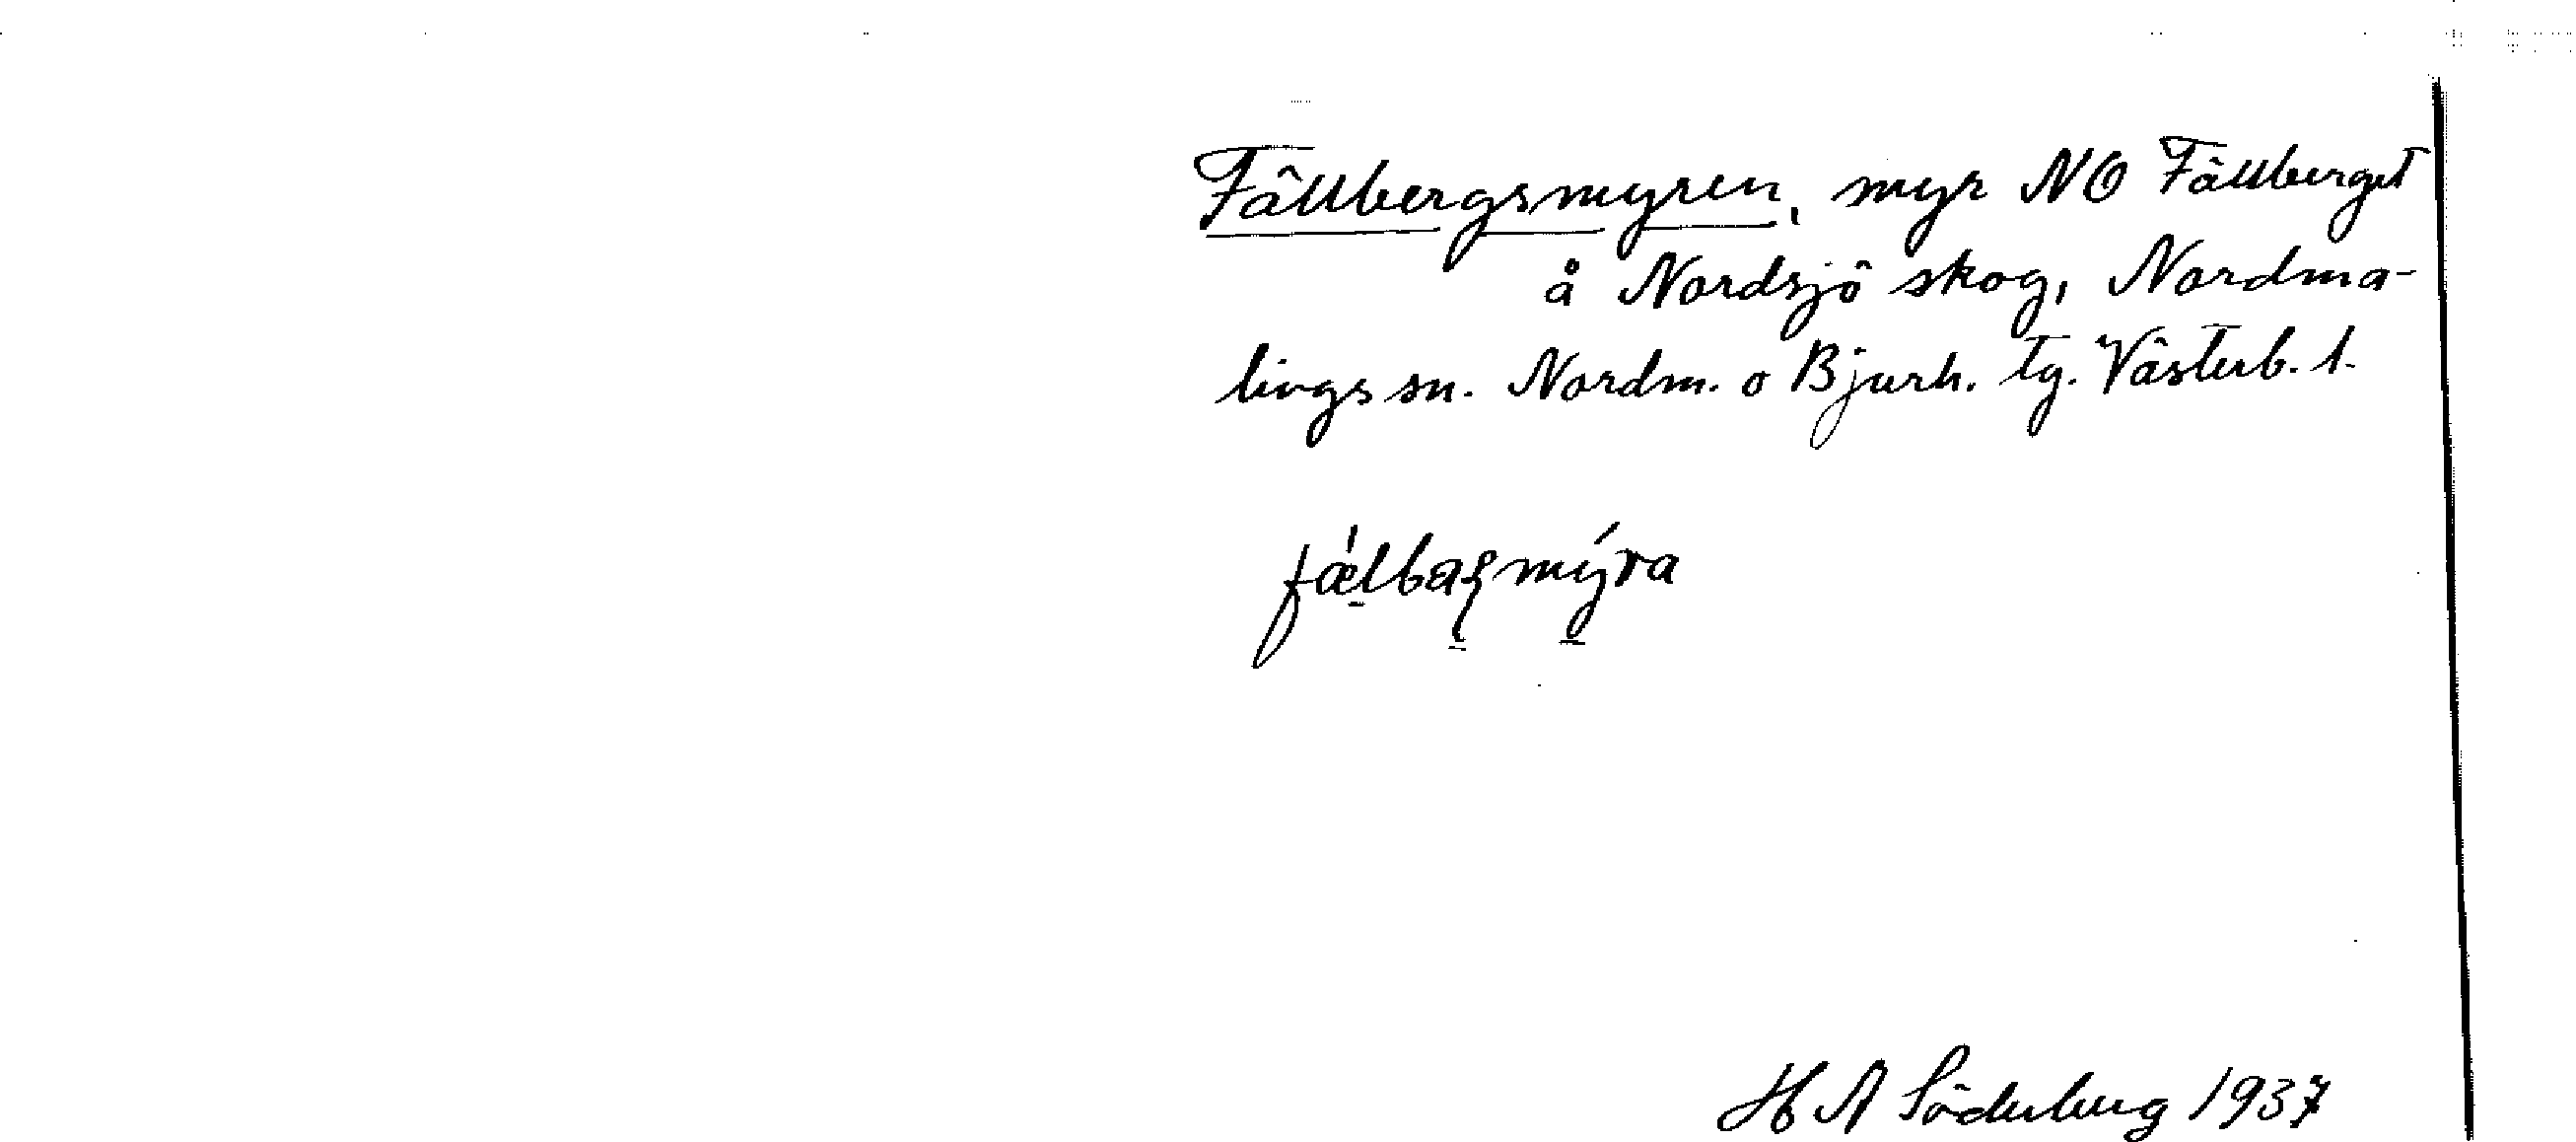 Fällbergsmyren, myr NO Fällberget
å Nordsjö skog, Nordma-
lings sn. Nordm. o Bjurh. tg. Västerb. l.
fæ̀lbaʂmýra
H A Söderberg 1937